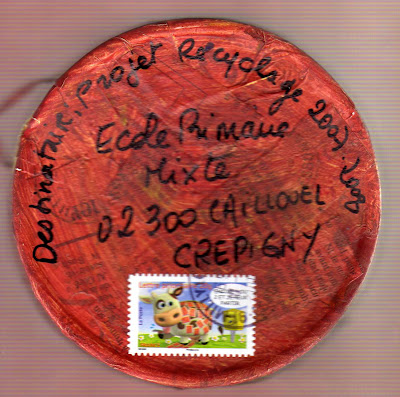 Destinataire: Projet Recyclage 2007.2008
Ecole Primaire
Mixte
02300 CAILLOUEL
CREPIGNY